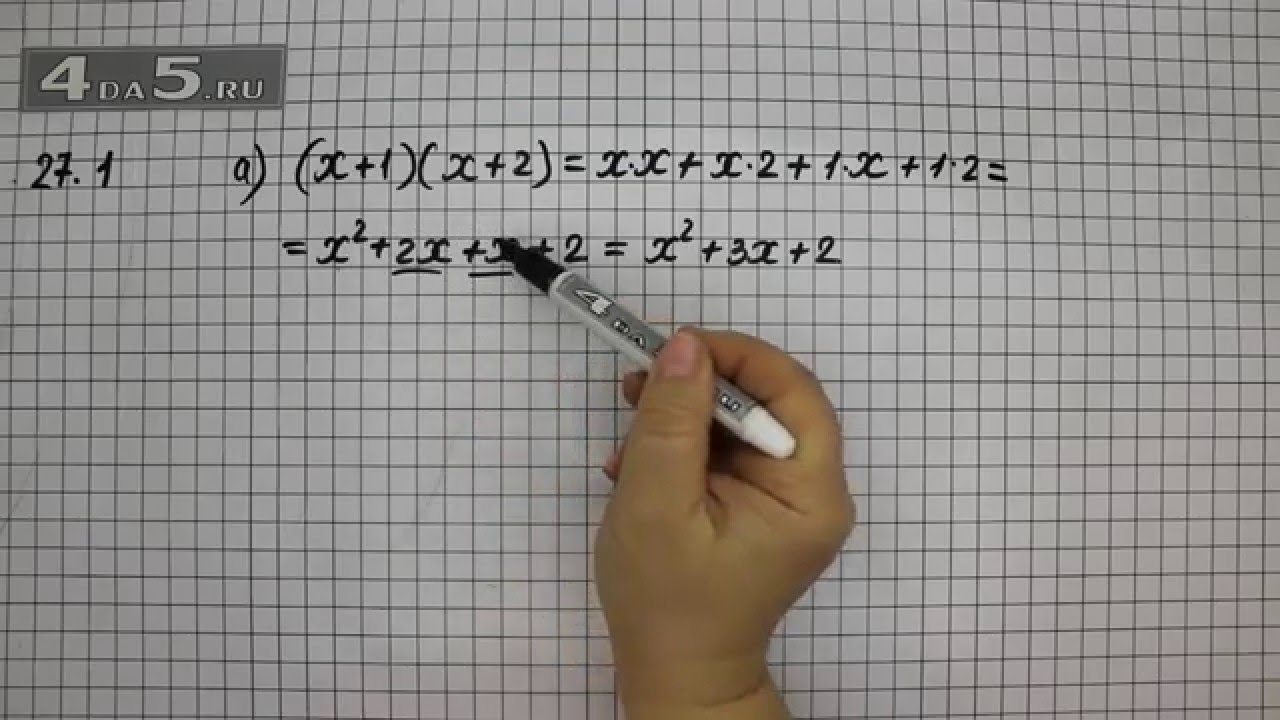 4DA5.RU
27.1 а) (x+1)(x+2)=x·x+x·2+1·x+1·2=
=x²+2x+x+2=x²+3x+2
4 DA